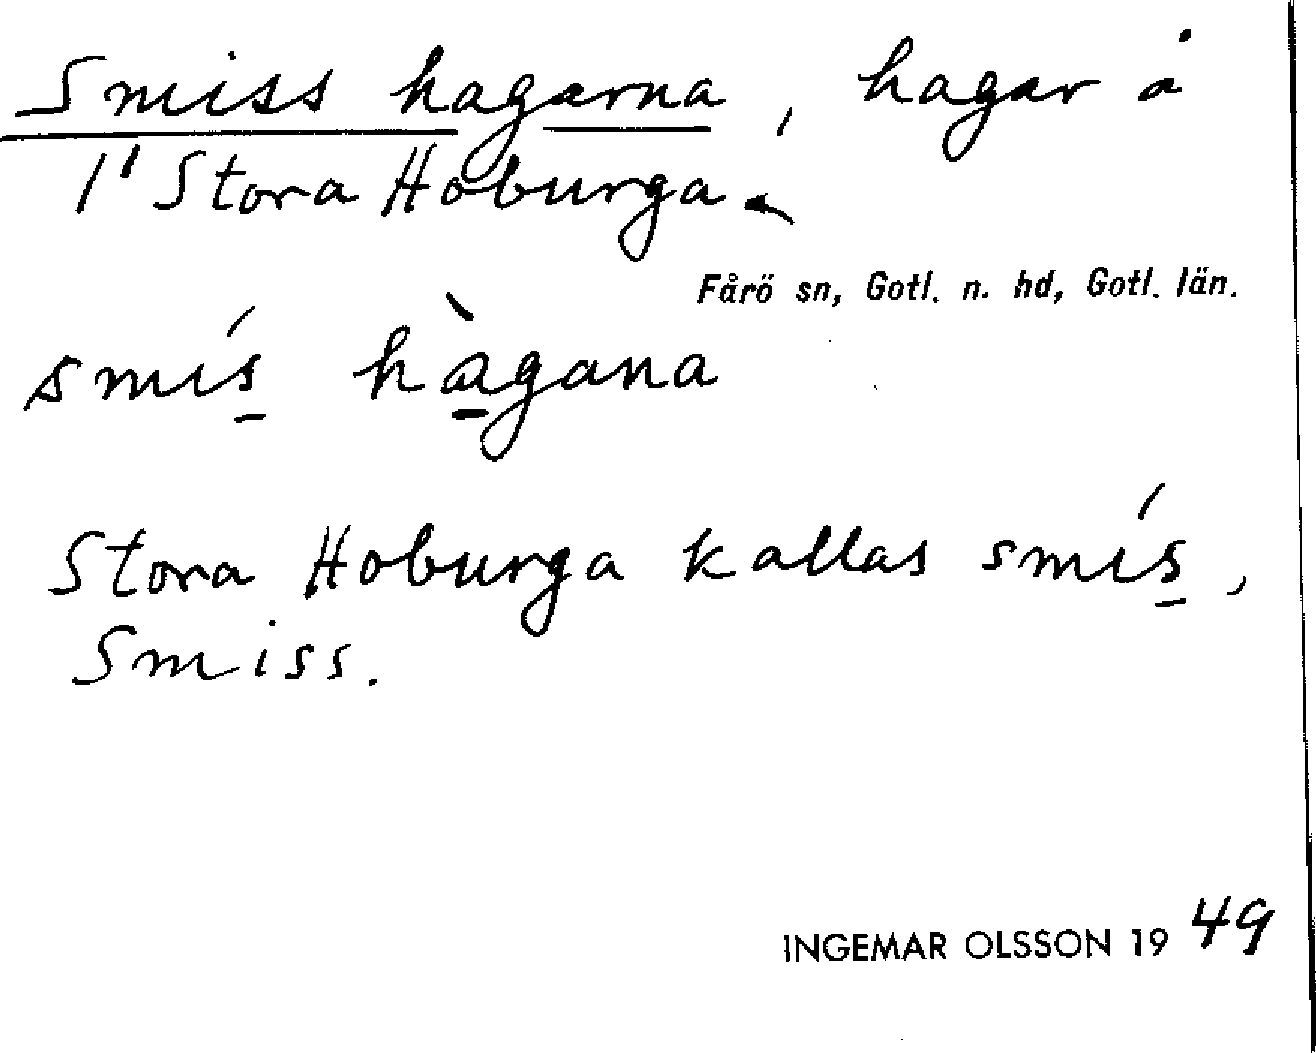 Smiss hagarna, hagar å
1' Stora Hoburga.
Fårö sn, Gotl. n. hd, Gotl. län.
smís̠ hà̠gana
Stora Hoburga kallas smís̠,
Smiss.
INGEMAR OLSSON 1949